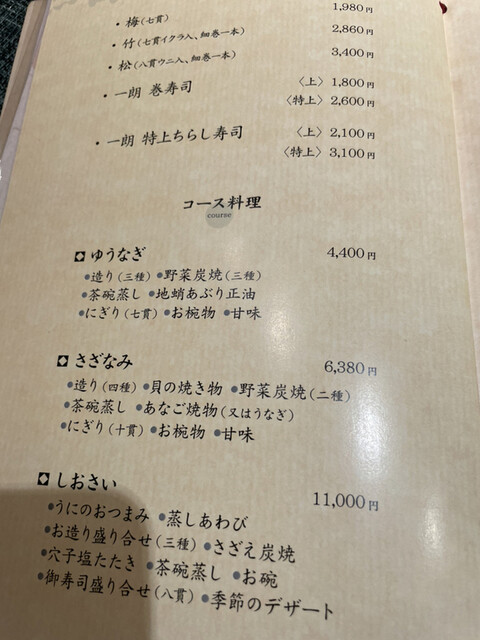 ・梅(七貫) 1,980円
・竹(七貫イクラ入、細巻一本) 2,860円
・松(八貫ウニ入、細巻一本) 3,400円
・一朗 巻寿司 〈上〉1,800円
〈特上〉2,600円
・一朗 特上ちらし寿司 〈上〉2,100円
〈特上〉3,100円
コース料理
course
ゆうなぎ 4,400円
●造り(三種) ●野菜炭焼(三種)
●茶碗蒸し ●地蛸あぶり正油
●にぎり(七貫) ●お椀物 ●甘味
さざなみ 6,380円
●造り(四種) ●貝の焼き物 ●野菜炭焼(二種)
●茶碗蒸し ●あなご焼物(又はうなぎ)
●にぎり(十貫) ●お椀物 ●甘味
しおさい 11,000円
●うにのおつまみ ●蒸しあわび
●お造り盛り合せ(三種) ●さざえ炭焼
●穴子塩たたき ●茶碗蒸し ●お碗
●御寿司盛り合せ(八貫) ●季節のデザート